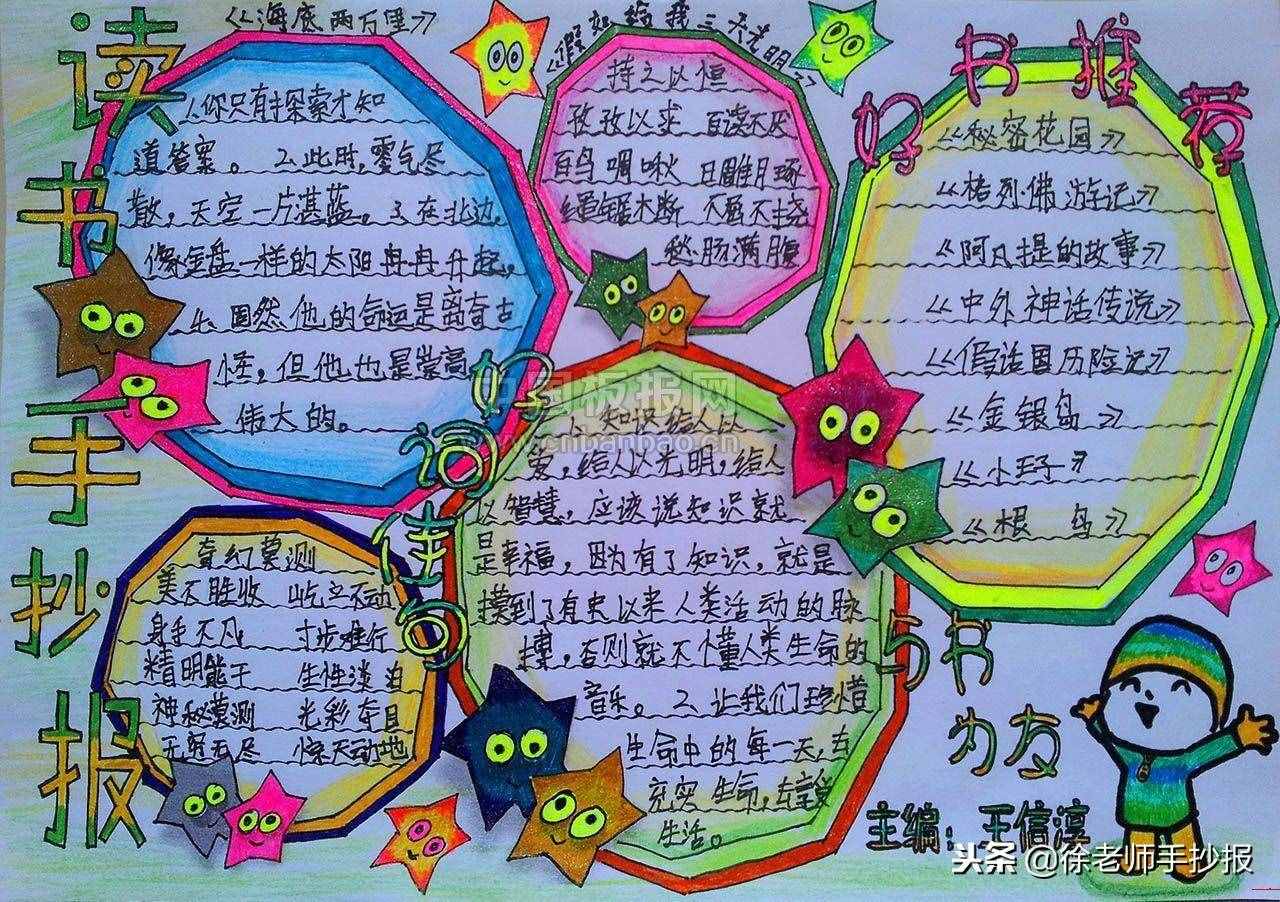 读书手抄报
《海底两万里》
1、你只有探索才知
道答案。 2、此时，雾气尽
散，天空一片湛蓝。3、在北边，
像金盘一样的太阳冉冉升起，
4、固然他的命运是离奇古
怪，但他也是崇高
伟大的。
《假如给我三天光明》
持之以恒
孜孜以求 百读不厌
百鸟啁啾 日雕月琢
绳锯木断 不屈不挠
愁肠满腹
好书推荐
《秘密花园》
《格列佛游记》
《阿凡提的故事》
《中外神话传说》
《假话国历险记》
《金银岛》
《小王子》
《根鸟》
好词佳句
奇幻莫测
美不胜收 屹立不动
身手不凡 寸步难行
精明能干 生性淡泊
神秘莫测 光彩夺目
无穷无尽 惊天动地
1、知识给人以
爱，给人以光明，给人
以智慧，应该说知识就
是幸福，因为有了知识，就是
摸到了有史以来人类活动的脉
搏，否则就不懂人类生命的
音乐。2、让我们珍惜
生命中的每一天，去
充实生命，去享受
生活。
与书
为友
主编：王信淳
中国板报网
www.cnbanbao.cn
头条@徐老师手抄报